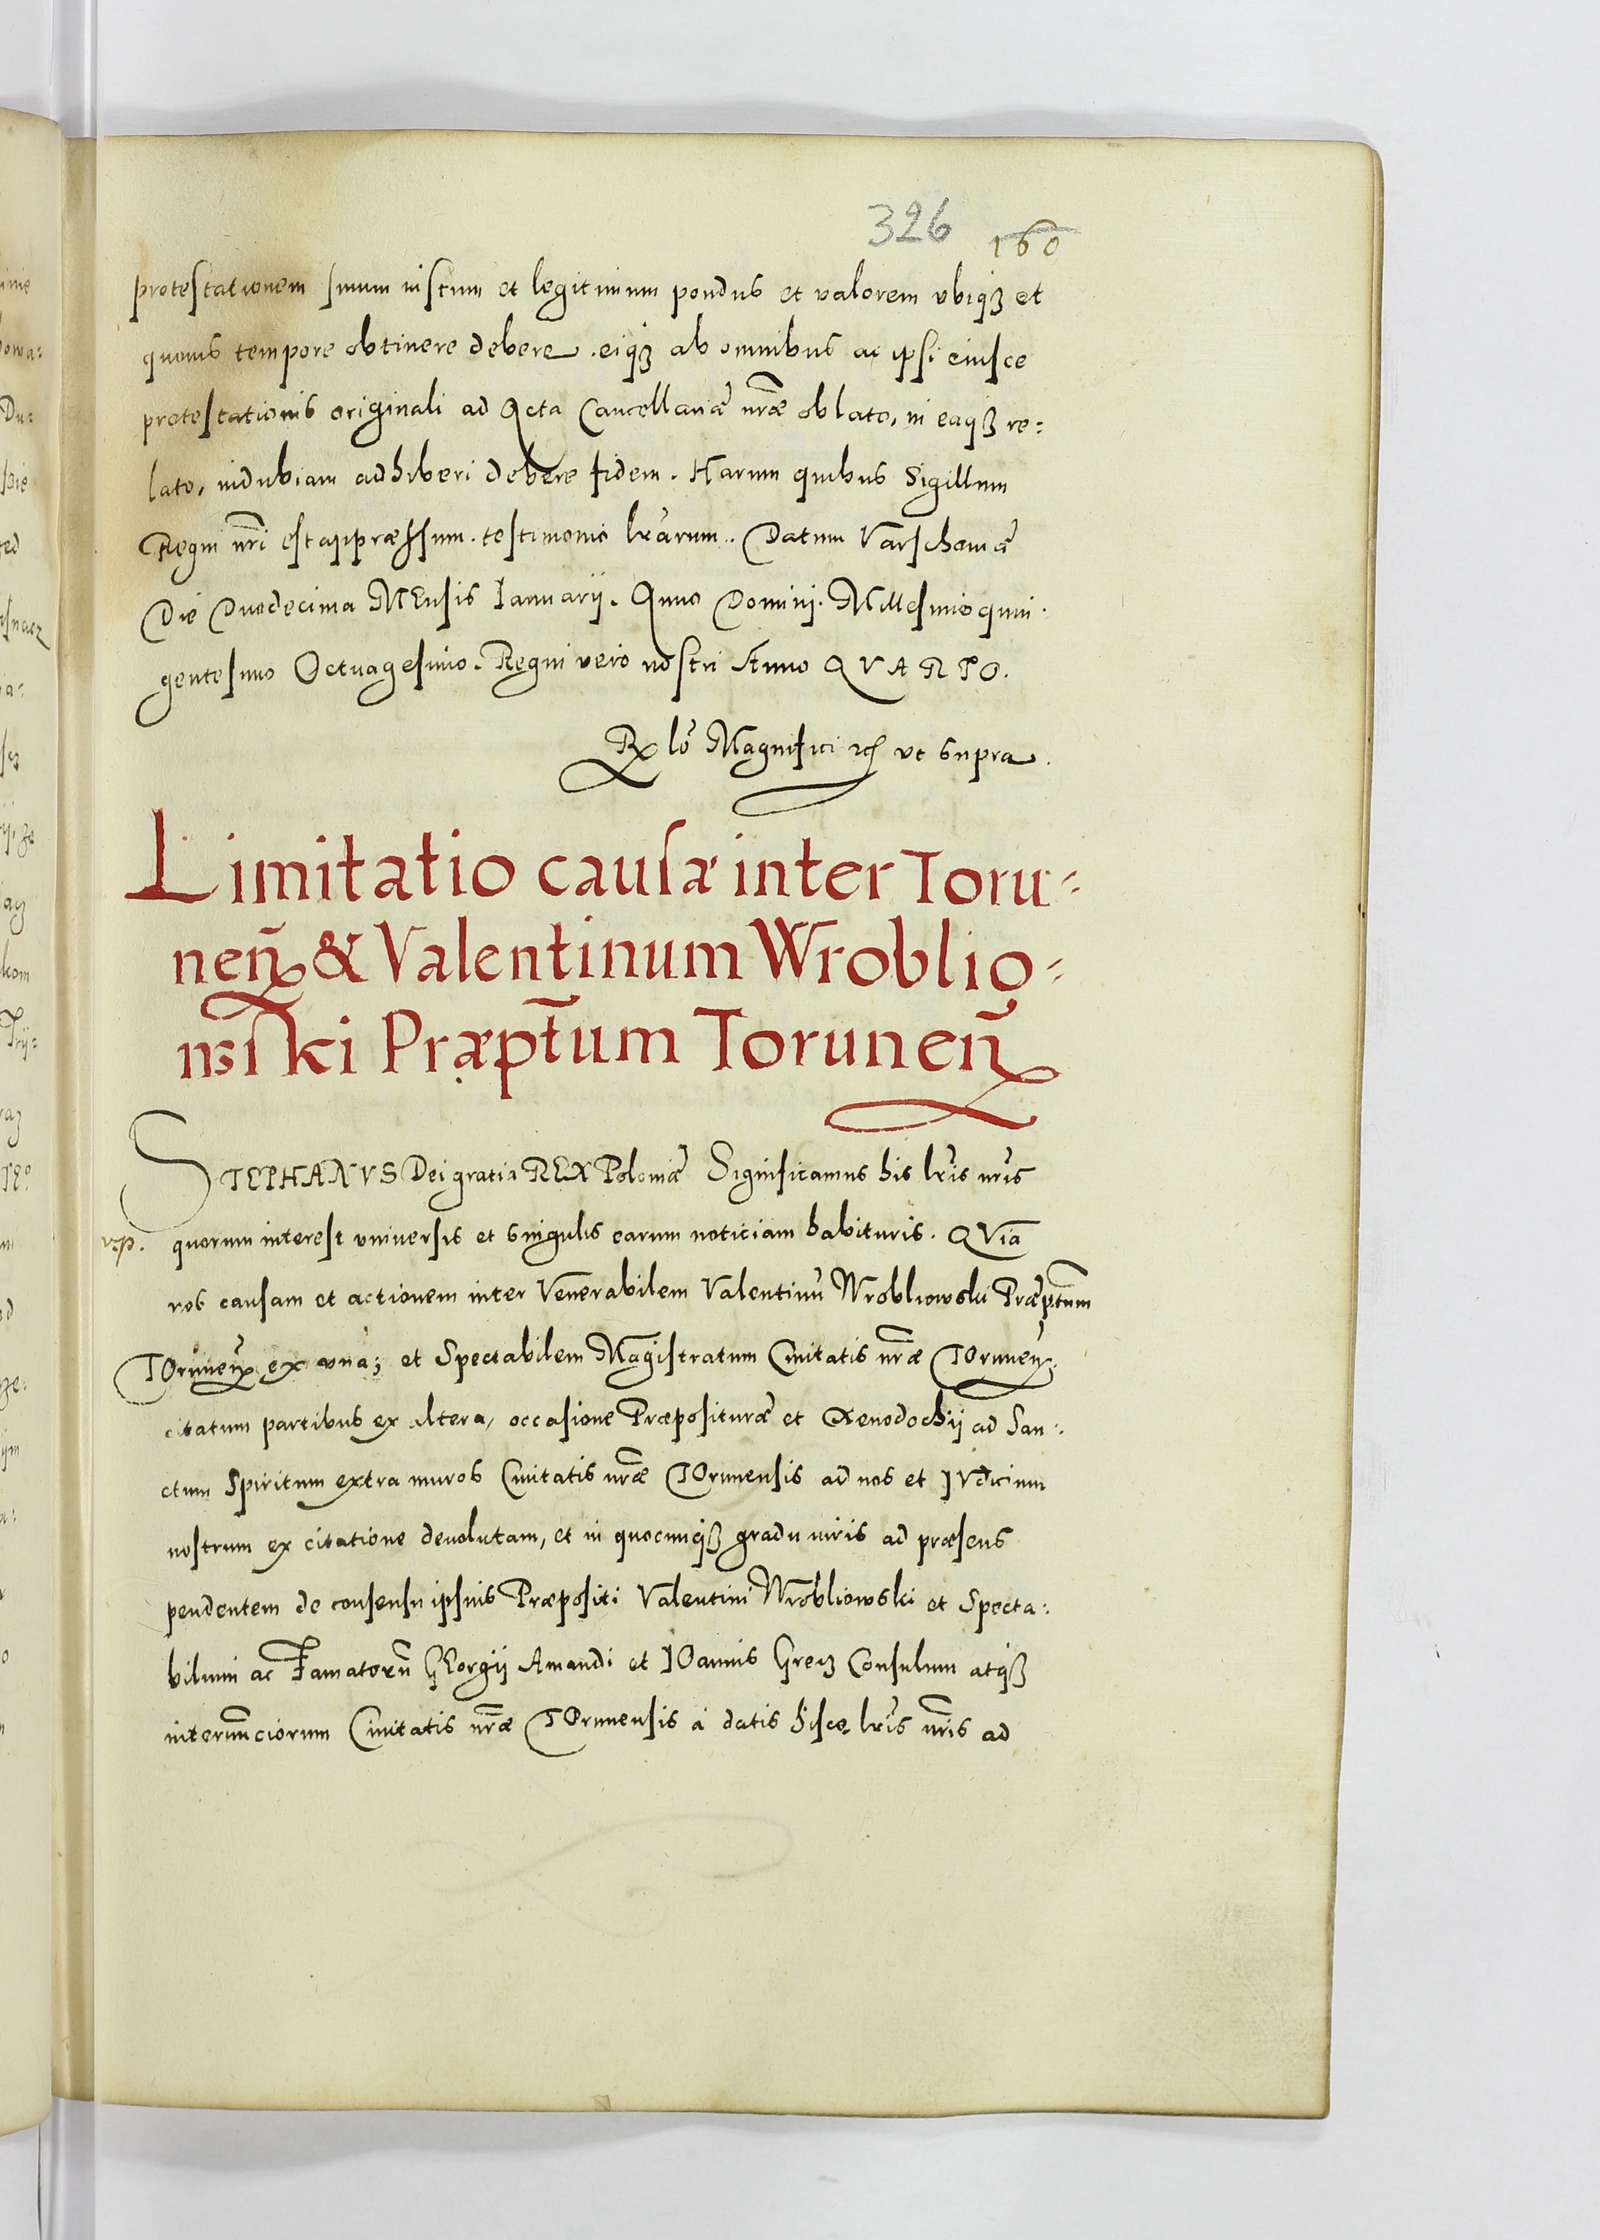 326 160
protestationem suum iustum et legitimum pondus et valorem vbiqȝ et
quouis tempore obtinere debere. eiqȝ ab omnibus ac ipsi eiusce
protestationis originali ad Acta Cancellariæ nr̃æ oblato, in eaqȝ re=
lato, indubiam adhiberi debere fidem. Harum quibus Sigillum
Regni nr̃i est appræssum. testimonio lr̃arum.. Datum Varschouiæ
Die Duodecima MEnsis Ianuarij. Anno Domini. Millesimo quin.
gentesimo Octuagesimo. Regni vero nostri Anno QVARTO.
Rlõ Magnifici ut supra.
Limitatio causæ inter Toru=
neñ & Valentinum Wroblio=
wski Præpt̃um Toruneñ
STEPHANVS Dei gratia REX Poloniæ Significamus his lr̃is nr̃is
quorum interest vniuersis et singulis earum noticiam habituris. QVia
nos causam et actionem inter Venerabilem Valentinũ Wrobliowski Præpt̃um
TOruneñ ex vna; et Spectabilem Magistratum Ciuitatis nr̃æ TOruneñ.
citatum partibus ex altera, occasione Præposituræ et Xenodochij ad San=
ctum Spiritum extra muros Ciuitatis nr̃æ TOrunensis ad nos et IVdicium
nostrum ex citatione deuolutam, et in quocunqȝ gradu iuris ad præsens
pendentem de consensu ipsius Præpositi Valentini Wrobliowski et Specta=
bilium ac Famatorũ GEorgij Amandi et IOannis Grecȝ Consulum atqȝ
internunciorum Ciuitatis nr̃æ TOrunensis a datis hisce lr̃is nr̃is ad